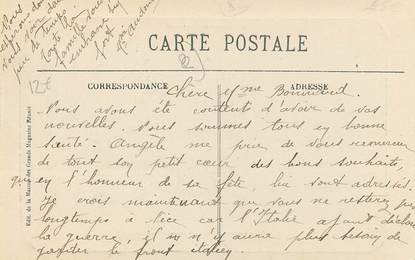 Nous
espérons donc
vous voir dans
peu de temps.
Toute la
famille vous
embrasse bien
fort
CARTE POSTALE
CORRESPONDANCE
ADRESSE
Chère Mme
Nous avons été contents d'avoir de vos
nouvelles. Nous sommes tous en bonne
santé. Angèle me prie de vous remercier
de tout son petit cœur des bons souhaits,
qui en l'honneur de sa fête, lui sont adressés.
Je crois maintenant que vous ne resterez pas
longtemps à Nice car l'Italie ayant déclaré
la guerre, il n'y aura plus besoin de
garder le front italien.
Edit. de la Maison des Grands Magasins